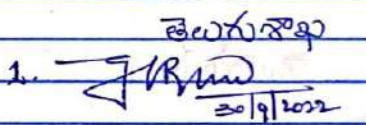 తెలుగుశాఖ
1.
30/9/2022